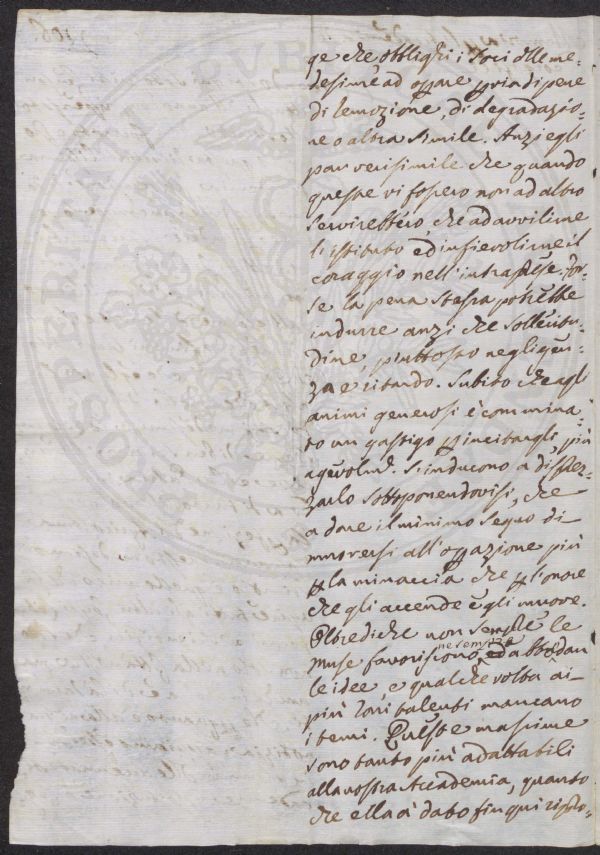 ge che obblighi i Soci delle me=
desime ad oprare p via di pene
di remozione, di degradazio=
ne o altra simile. Anzi egli
par verisimile che quando
queste vi fossero non ad altro
servirebbero, che ad avvilirne
l'istituto ed infievolirne il
coraggio nell'intraprese. For=
se la pena stessa potrebbe
indurre anzi che sollecitu=
dine, piuttosto negligen=
za e ritardo. Subito che agl
animi generosi è commina
to un gastigo p incitargli più
agevolmte. s'inducono a disprez=
zarlo sottoponendovisi, che
a dare il minimo segno di
muoversi all'oprazione più
p la minaccia che p l'onore
che gli accende e gli muove.
Oltrediche non sempre le
Muse favoriscono
ed abbōdan
le idee, e qualche volta ai
più rari talenti mancano
i temi. Queste massime
sono tanto più adattabili
alla nostra Accademia, quanto
che ella à dato fin qui